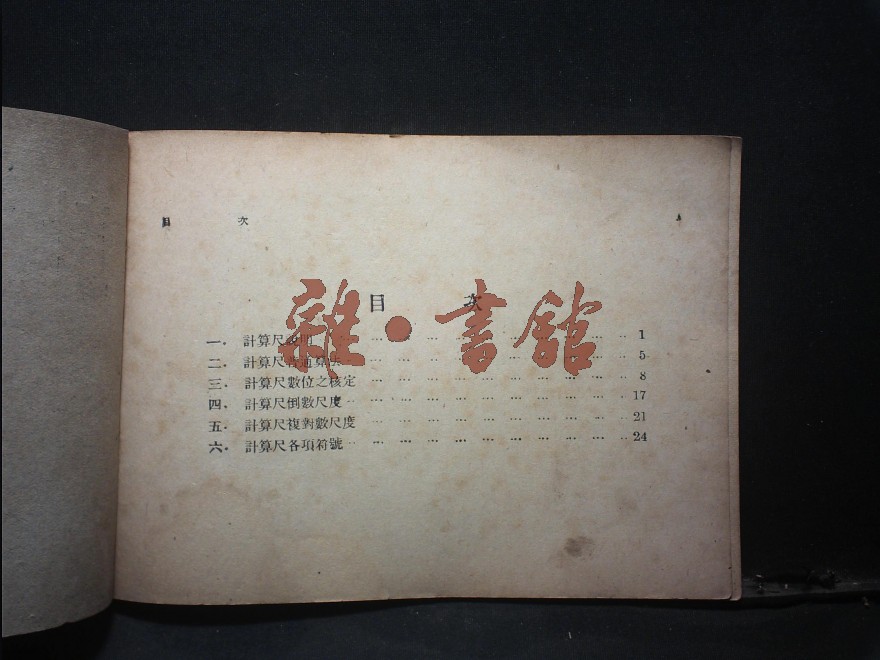 目 次
目 次
一. 計算尺說明 … 1
二. 計算尺普通算法 … 5
三. 計算尺數位之核定 … 8
四. 計算尺倒數尺度 … 17
五. 計算尺複對數尺度 … 21
六. 計算尺各項符號 … 24
雜·書館